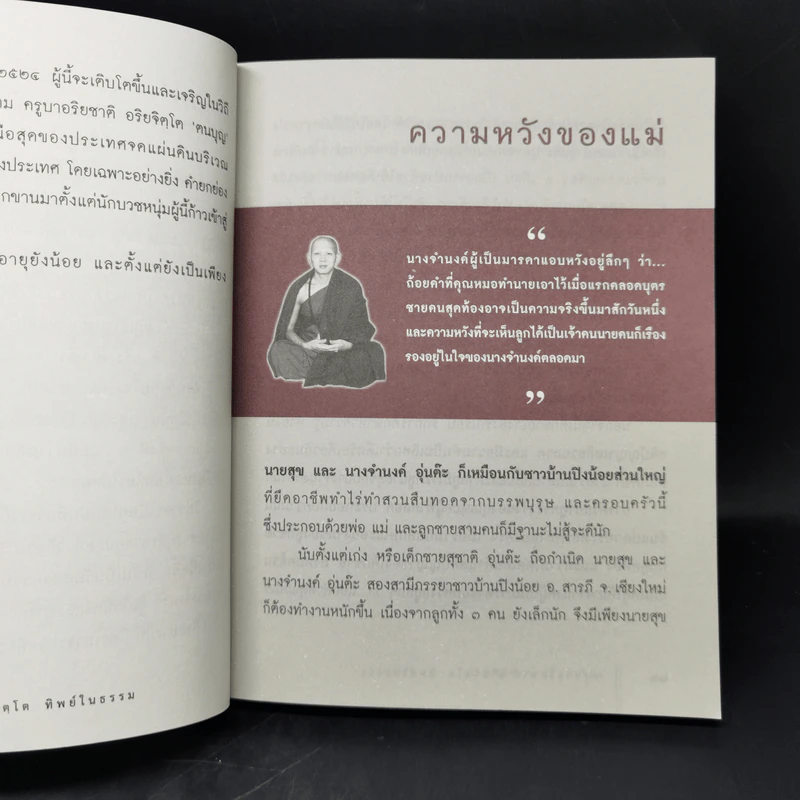 ๒๕๒๔ ผู้นี้จะเติบโตขึ้นและเจริญในวิถี
ครูบาอริยชาติ อริยจิตฺโต 'ตนบุญ'
สุดของประเทศจดแผ่นดินบริเวณ
ประเทศ โดยเฉพาะอย่างยิ่ง คำยกย่อง
กขานมาตั้งแต่นักบวชหนุ่มผู้นี้ก้าวเข้าสู่
อายุยังน้อย และตั้งแต่ยังเป็นเพียง
ตฺโต ทิพย์ในธรรม
ความหวังของแม่
“
นางจำนงค์ผู้เป็นมารดาแอบหวังอยู่ลึกๆ ว่า...
ถ้อยคำที่คุณหมอทำนายเอาไว้เมื่อแรกคลอดบุตร
ชายคนสุดท้องอาจเป็นความจริงขึ้นมาสักวันหนึ่ง
และความหวังที่จะเห็นลูกได้เป็นเจ้าคนนายคนก็เรือง
รองอยู่ในใจของนางจำนงค์ตลอดมา
”
นายสุข และ นางจำนงค์ อุ่นต๊ะ ก็เหมือนกับชาวบ้านปิงน้อยส่วนใหญ่
ที่ยึดอาชีพทำไร่ทำสวนสืบทอดจากบรรพบุรุษ และครอบครัวนี้
ซึ่งประกอบด้วยพ่อ แม่ และลูกชายสามคนก็มีฐานะไม่สู้จะดีนัก
นับตั้งแต่เก่ง หรือเด็กชายสุชาติ อุ่นต๊ะ ถือกำเนิด นายสุข และ
นางจำนงค์ อุ่นต๊ะ สองสามีภรรยาชาวบ้านปิงน้อย อ. สารภี จ. เชียงใหม่
ก็ต้องทำงานหนักขึ้น เนื่องจากลูกทั้ง ๓ คน ยังเล็กนัก จึงมีเพียงนายสุข